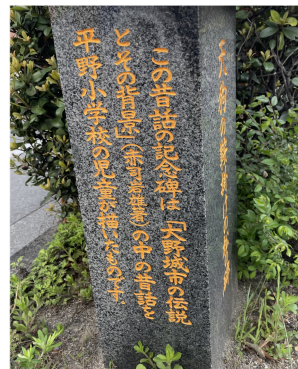 この昔話の記念碑は、「大野城市の伝説
とその背景」（赤司岩雄著）の中の昔話を
平野小学校の児童が描いたものです。